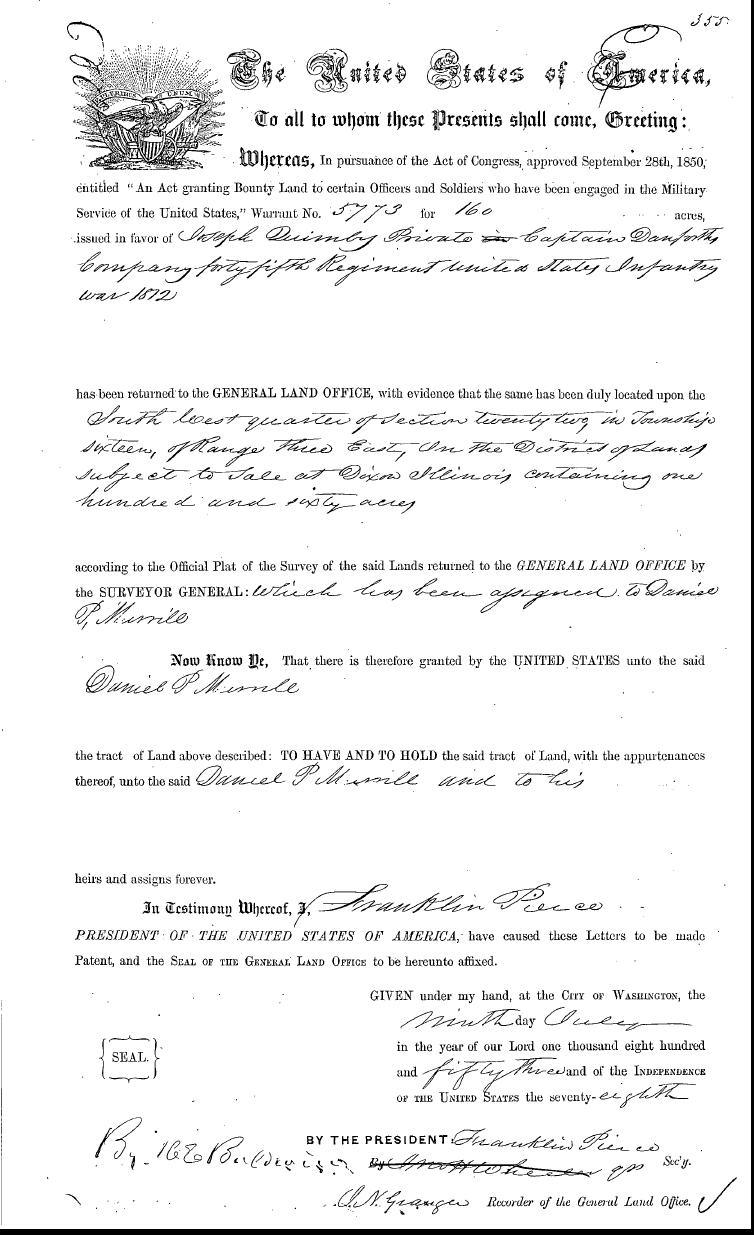 355
E PLURIBUS UNUM
The United States of America,
To all to whom these Presents shall come, Greeting:
Whereas, In pursuance of the Act of Congress, approved September 28th, 1850,
entitled "An Act granting Bounty Land to certain Officers and Soldiers who have been engaged in the Military
Service of the United States," Warrant No. 5773 for 160 acres,
issued in favor of Joseph Quimby Private in Captain Danforths
Company forty fifth Regiment United States Infantry
war 1812
has been returned to the GENERAL LAND OFFICE, with evidence that the same has been duly located upon the
South West quarter of Section twenty two, in Township
sixteen, of Range three East, In the District of Lands
subject to Sale at Dixon Illinois containing one
hundred and sixty acres
according to the Official Plat of the Survey of the said Lands returned to the GENERAL LAND OFFICE by
the SURVEYOR GENERAL: which has been assigned to Daniel
P, Merrill
Now Know Ye, That there is therefore granted by the UNITED STATES unto the said
Daniel P Merrill
the tract of Land above described: TO HAVE AND TO HOLD the said tract of Land, with the appurtenances
thereof, unto the said Daniel P Merrill and to his
heirs and assigns forever.
In Testimony Whereof, I, Franklin Pierce
PRESIDENT OF THE UNITED STATES OF AMERICA, have caused these Letters to be made
Patent, and the SEAL OF THE GENERAL LAND OFFICE to be hereunto affixed.
GIVEN under my hand, at the CITY OF WASHINGTON, the
ninth day July
in the year of our Lord one thousand eight hundred
and fifty three and of the INDEPENDENCE
OF THE UNITED STATES the seventy-eighth
SEAL.
BY THE PRESIDENT: Franklin Pierce
By. H E Baldwin
By Sec'y.
J. N. Granger Recorder of the General Land Office.